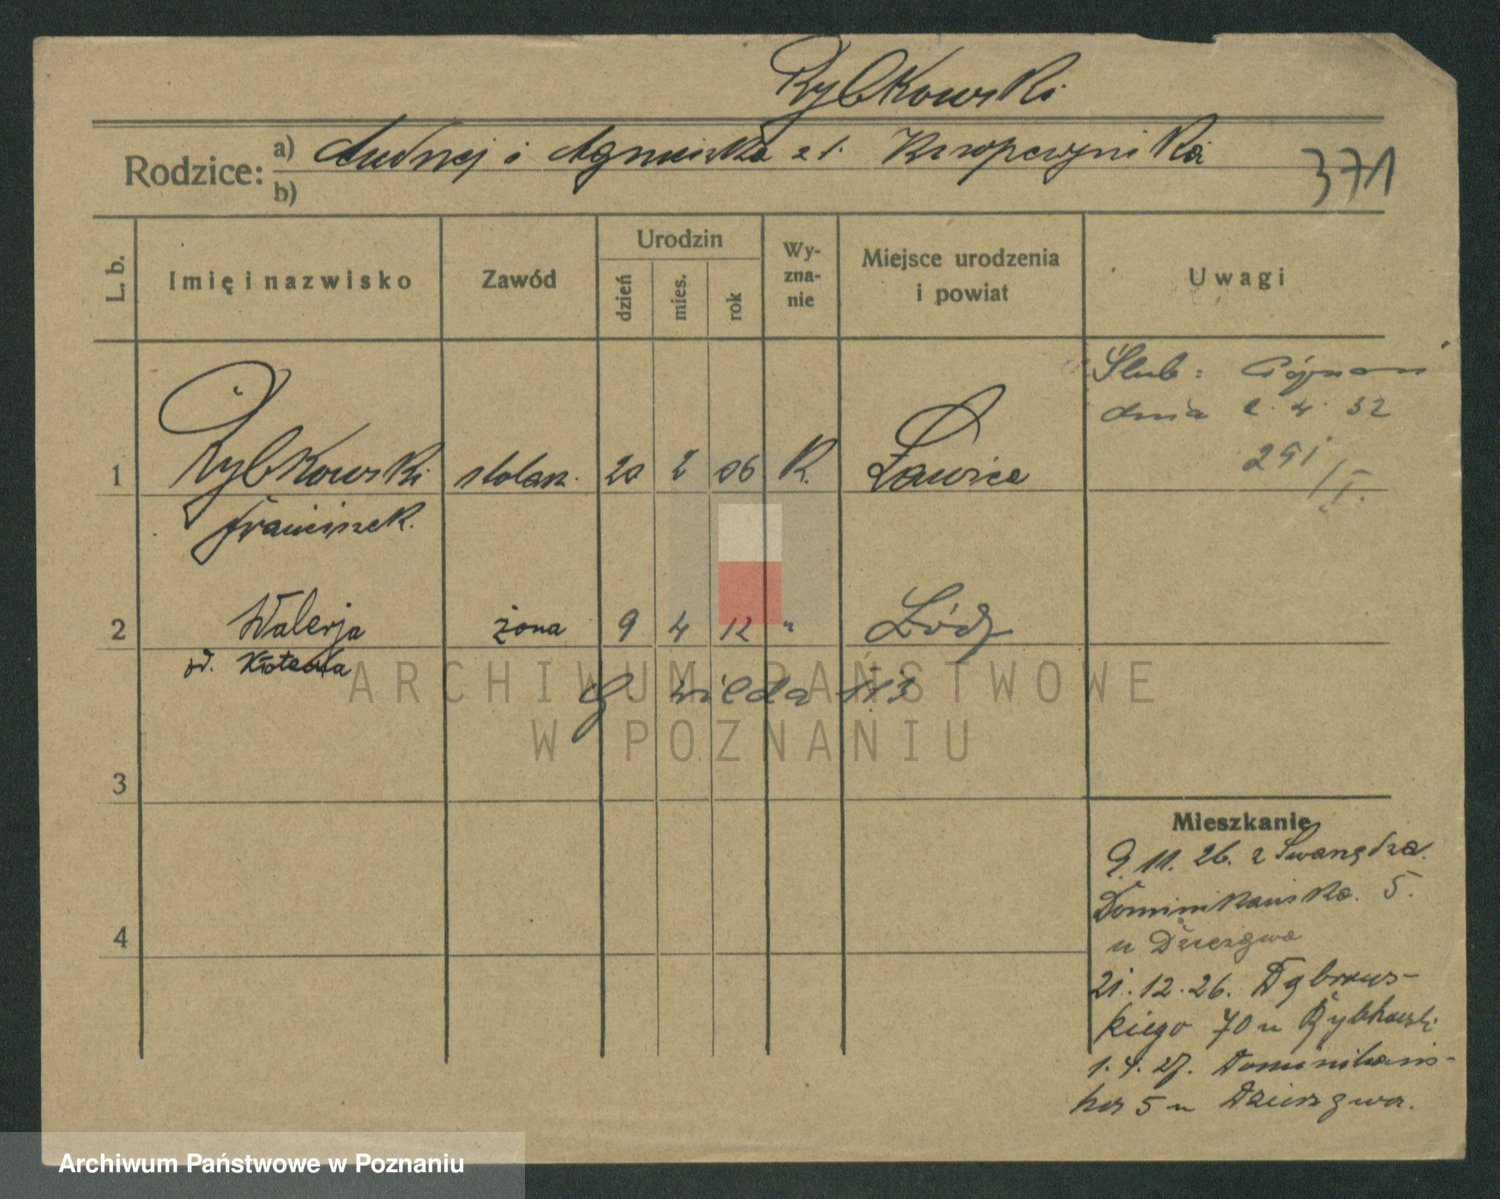 Rybkowski
Rodzice: a) Andrzej i Agnieszka z d.
b)
371
L. b.
Imię i nazwisko
Zawód
Urodzin
dzień
mies.
rok
Wy-
zna-
nie
Miejsce urodzenia
i powiat
Uwagi
Ślub: Poznań
dnia 2. 4. 32
291/I.
1 Rybkowski stolarz. 20 2 06 R. Ławica
Franciszek.
2 Walerja żona 9 4 12 " Łódź
G. Wilda 113
3
4
Mieszkanie
9. 11. 26. z Swarzędza.
Dominikańska 5.
u Dziezgwa
21. 12. 26. Dąbrows-
kiego 70 u Rybkowski
1. 4. 27. Dominikańs-
ka 5 u
ARCHIWUM PAŃSTWOWE
W POZNANIU
Archiwum Państwowe w Poznaniu